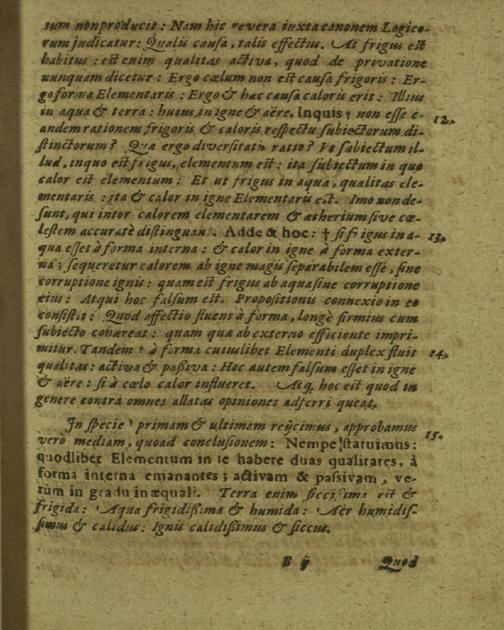 tum non producit: Nam hic revera iuxta canonem Logico-
rum judicatur: Qualis causa, talis effectus. At frigus est
habitus: est enim qualitas activa, quod de privatione
nunquam dicetur: Ergo cœlum non est causa frigoris: Er-
go forma Elementaris: Ergo & hac causa caloris erit: Illius
in aqua & terra: huius in igne & aëre. Inquis † non esse e- 12.
andem rationem frigoris & caloris respectu subiectorum di-
stinctorum? Quæ ergo diversitatis ratio? Vt subiectum il-
lud, in quo est frigus, elementum est: ita subiectum in quo
calor est elementum: Et ut frigus in aqua, qualitas ele-
mentaris: ita & calor in igne Elementaris est. Imo non de-
sunt, qui inter calorem elementarem & ætherium sive cœ-
lestem accuratè distinguant. Adde & hoc: † si frigus in a- 13.
qua esset à forma interna: & calor in igne à forma exter-
na; sequeretur calorem ab igne magis separabilem esse, sine
corruptione ignis: quam est frigus ab aqua sine corruptione
eius: Atqui hoc falsum est. Propositionis connexio in eo
consistit: Quod affectio fluens à forma, longè firmius cum
subiecto cohæreat: quam quæ ab externo efficiente impri-
mitur. Tandem † à forma cuiuslibet Elementi duplex fluit 14.
qualitas: activa & passiva: Hoc autem falsum esset in igne
& aëre: si à cœlo calor influeret. Atq; hoc est quod in
genere contra omnes allatas opiniones adferri queat.
In specie † primam & ultimam reijcimus, approbamus 15.
verò mediam, quoad conclusionem: Nempe statuimus:
quodlibet Elementum in se habere duas qualitates, à
forma interna emanantes; activam & passivam, ve-
rùm in gradu inæquali. Terra enim siccissima est &
frigida: Aqua frigidissima & humida: Aër humidis-
simus & calidus: Ignis calidissimus & siccus.
B ij Quod